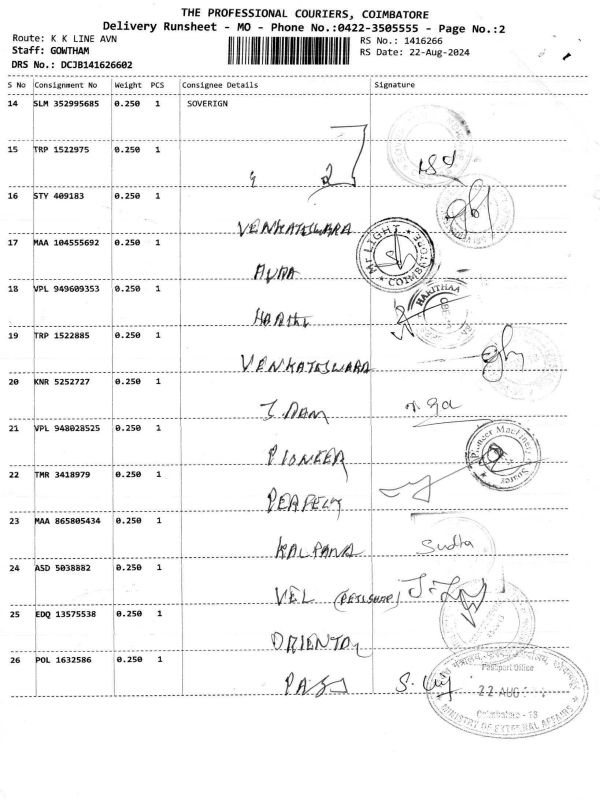 THE PROFESSIONAL COURIERS, COIMBATORE
Delivery Runsheet - MO - Phone No.:0422-3505555 - Page No.:2
Route: K K LINE AVN
RS No.: 1416266
Staff: GOWTHAM
RS Date: 22-Aug-2024
DRS No.: DCJB141626602
S No Consignment No Weight PCS Consignee Details Signature
14 SLM 352995685 0.250 1 SOVERIGN
15 TRP 1522975 0.250 1
16 STY 409183 0.250 1
VENKATESWARA
17 MAA 104555692 0.250 1
Mr LIGHT * COIMBATORE *
AURA
18 VPL 949609353 0.250 1
HARITHAA
19 TRP 1522885 0.250 1
VENKATESWARA
20 KNR 5252727 0.250 1
21 VPL 948028525 0.250 1
PIONEER
Pioneer Machinery Spares
22 TMR 3418979 0.250 1
23 MAA 865805434 0.250 1
KALPANA Sudha
24 ASD 5038882 0.250 1
VEL
25 EDQ 13575538 0.250 1
ORIENTAL
26 POL 1632586 0.250 1
Passport Office
22 AUG
Coimbatore - 18
MINISTRY OF EXTERNAL AFFAIRS